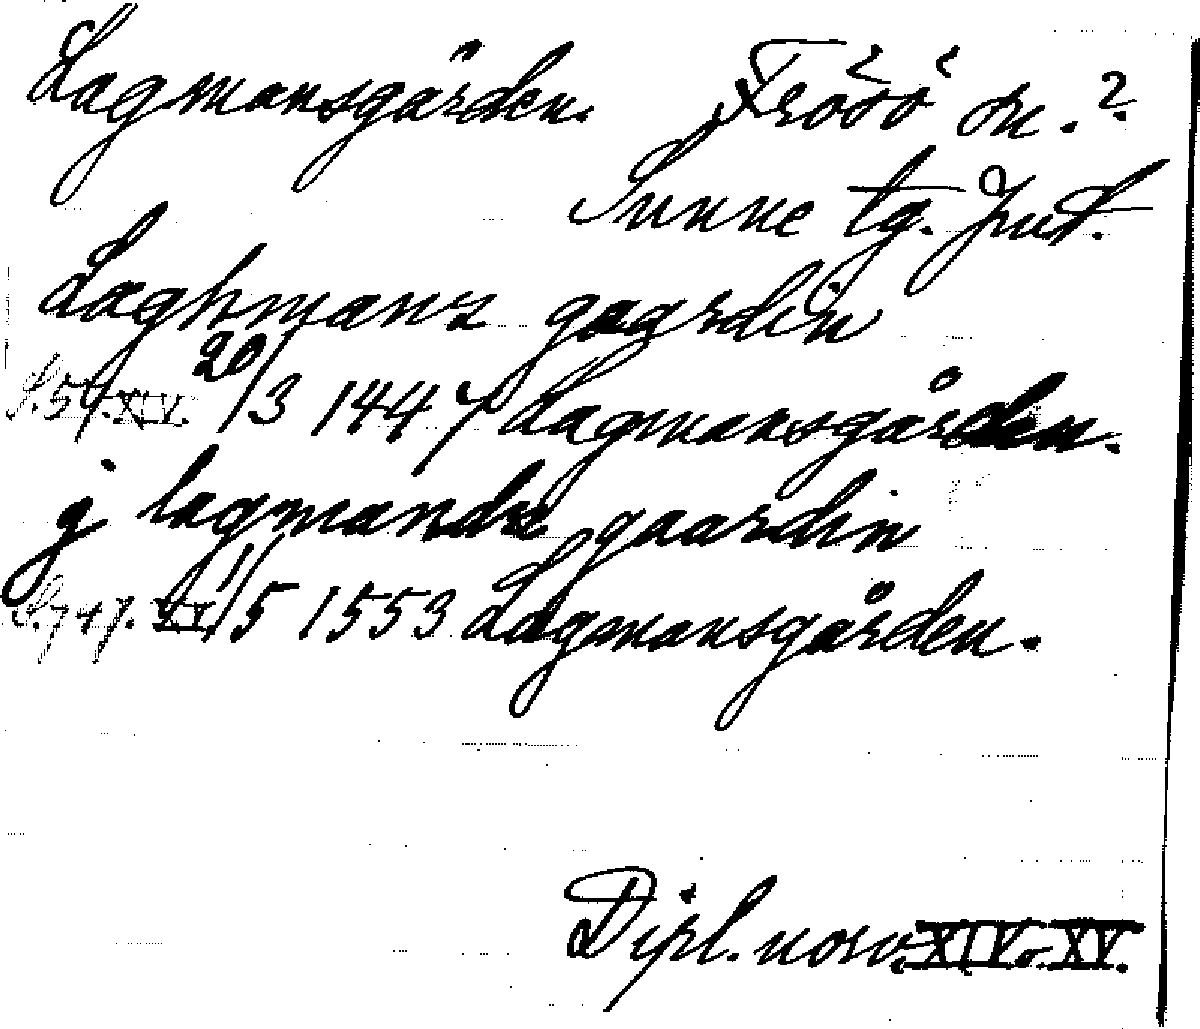 Lagmansgården. Frösö sn.?
Sunne tg. Jmt.
Laghmans gagrdin
S. 54. XIV. 20/3 1447 Lagmansgården.
j lagmandz gaardin
S. 747. XV 11/5 1553 Lagmansgården.
Dipl. norv. XIV o XV.